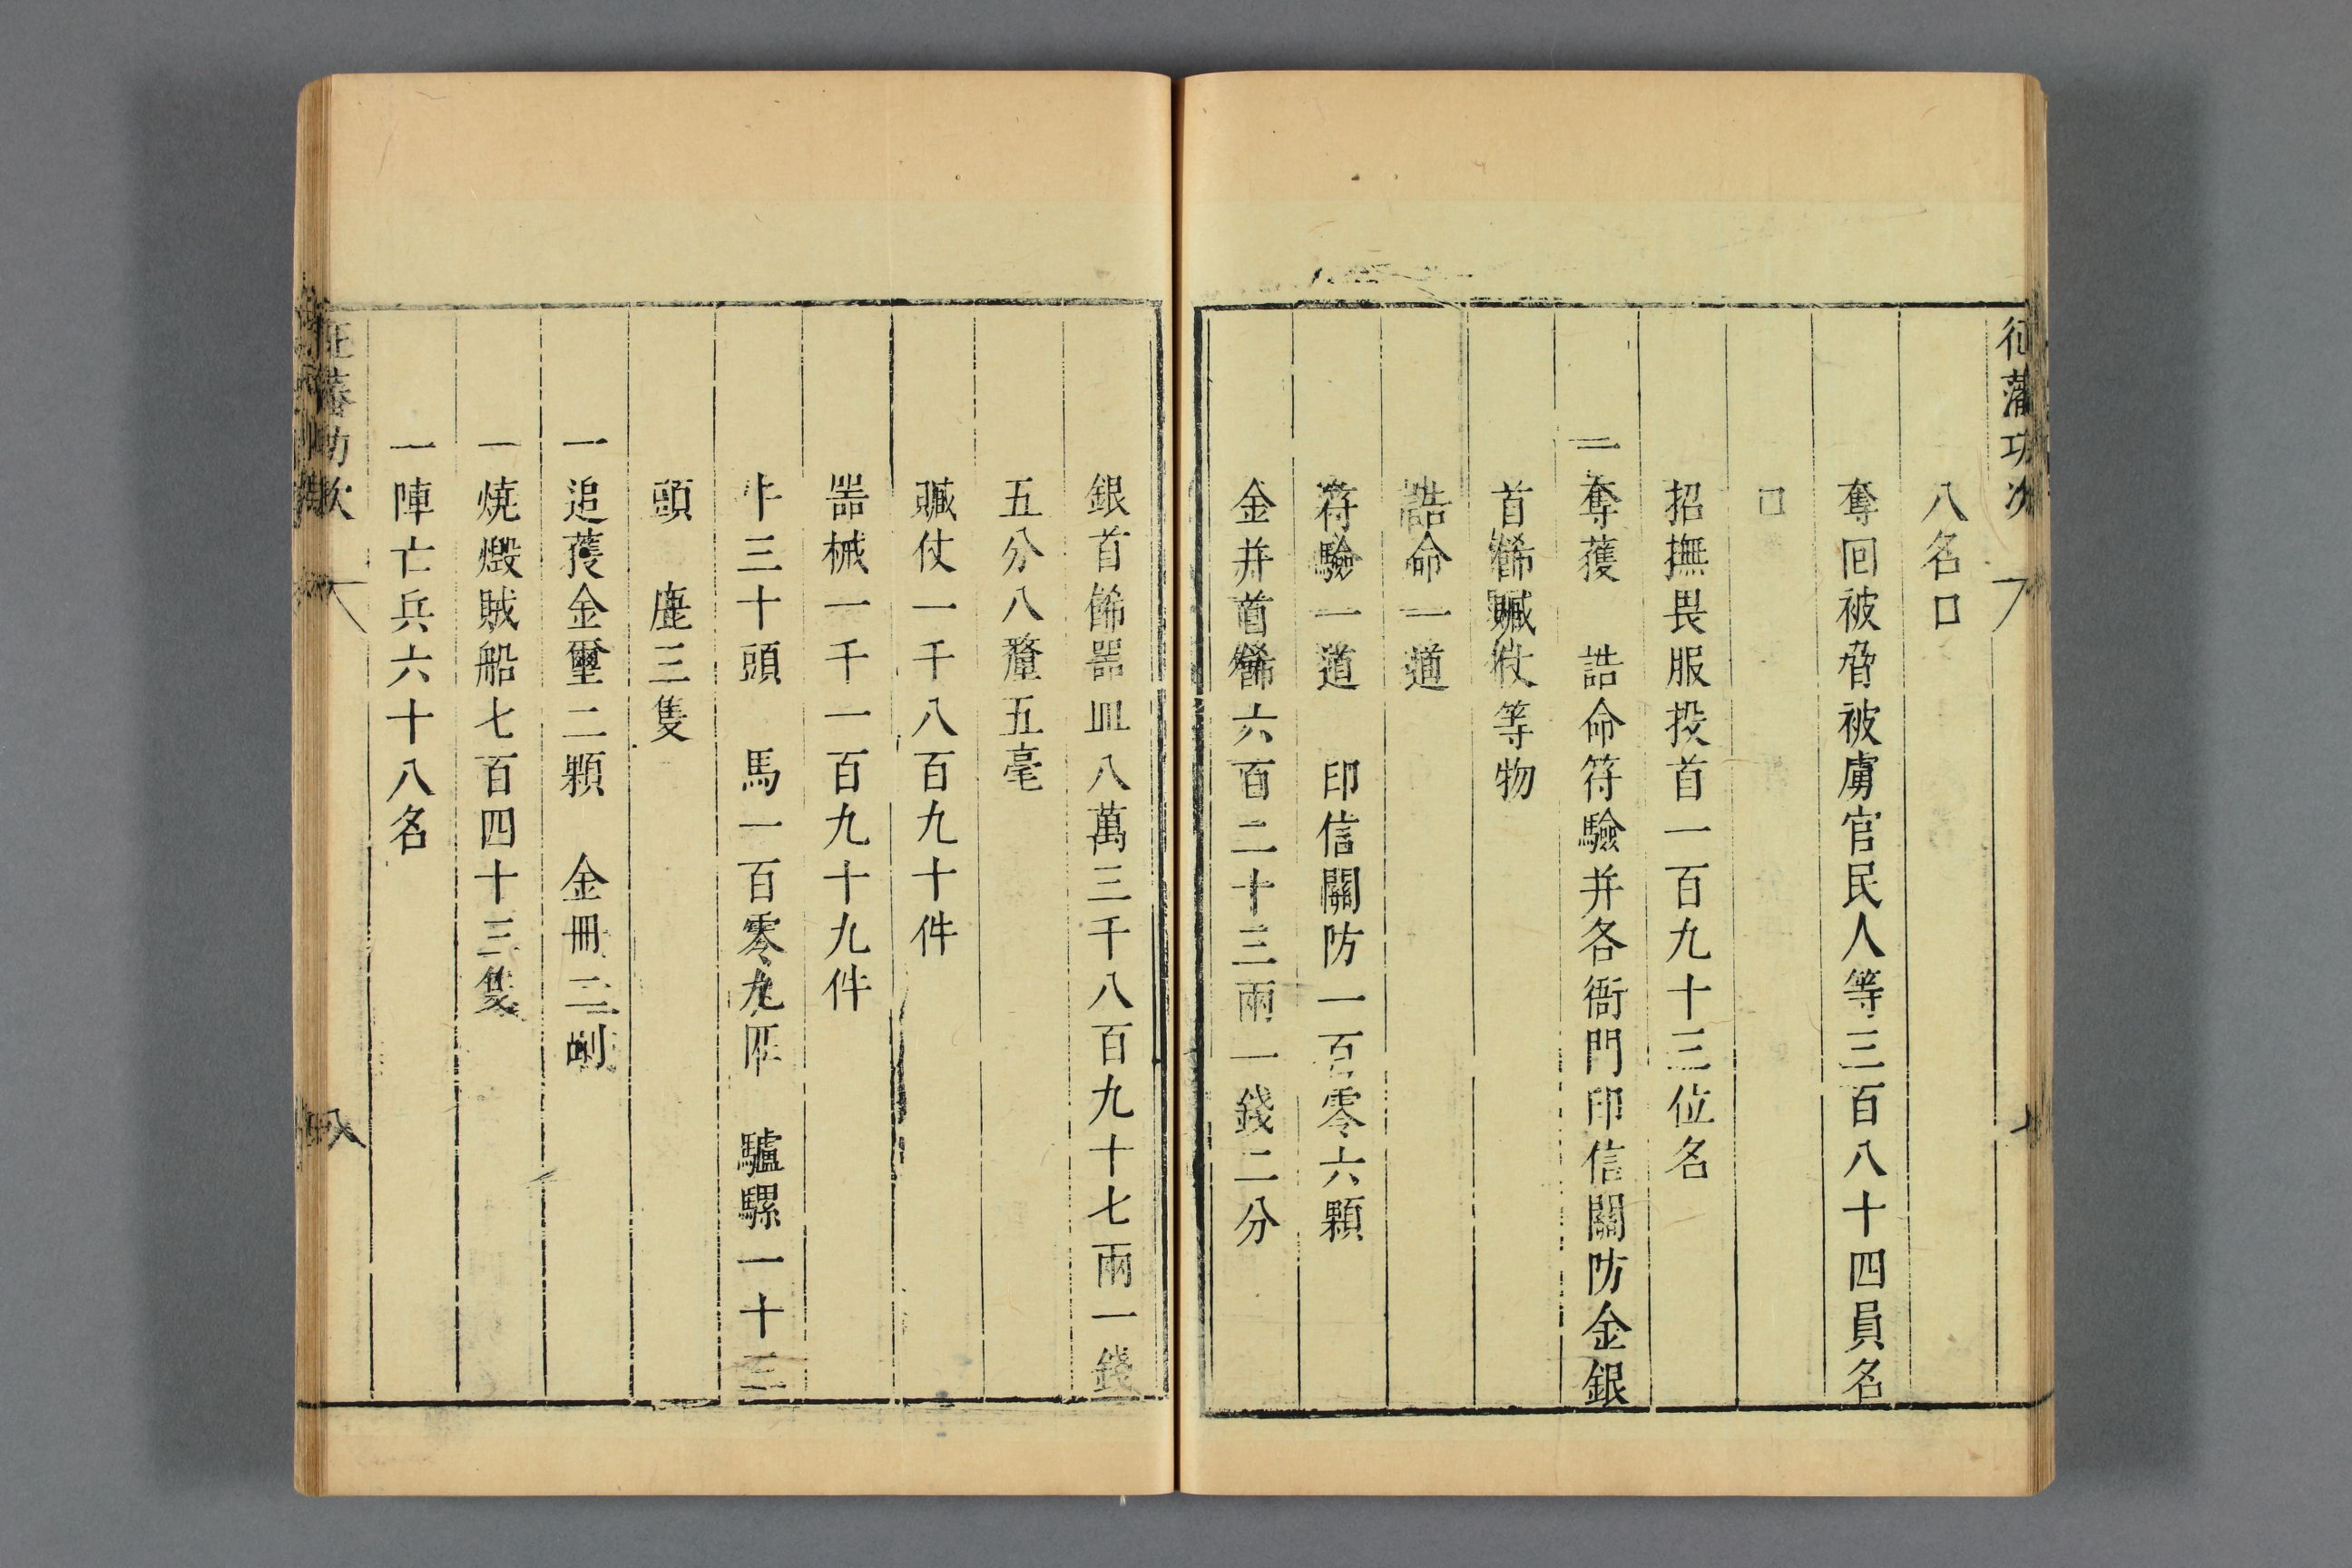 征藩功次
八名口
奪回被脅被虜官民人等三百八十四員名
口
招撫畏服投首一百九十三位名
一奪獲　誥命符驗并各衙門印信關防金銀
首餙贓仗等物
誥命一道
符驗一道　印信關防一百零六顆
金并首餙六百二十三兩一錢二分
銀首餙噐皿八萬三千八百九十七兩一錢
五分八釐五毫
贓仗一千八百九十件
噐械一千一百九十九件
牛三十頭　馬一百零九匹　驢騾一十三
頭　鹿三隻
一追獲金璽二顆　金冊二副
一燒燬賊船七百四十三隻
一陣亡兵六十八名
征藩功次
八